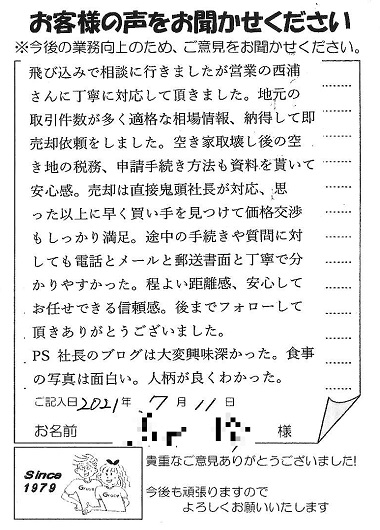 お客様の声をお聞かせください
※今後の業務向上のため、ご意見をお聞かせください。
飛び込みで相談に行きましたが営業の西浦
さんに丁寧に対応して頂きました。地元の
取引件数が多く適格な相場情報、納得して即
売却依頼をしました。空き家取壊し後の空
き地の税務、申請手続き方法も資料を貰いて
安心感。売却は直接鬼頭社長が対応、思
った以上に早く買い手を見つけて価格交渉
もしっかり満足。途中の手続きや質問に対
しても電話とメールと郵送書面と丁寧で分
かりやすかった。程よい距離感、安心して
お任せできる信頼感。後までフォローして
頂きありがとうございました。
PS 社長のブログは大変興味深かった。食事
の写真は面白い。人柄が良くわかった。
ご記入日 2021年 7月 11日
お名前 様
Since
1979
貴重なご意見ありがとうございました!
今後も頑張りますので
よろしくお願いいたします